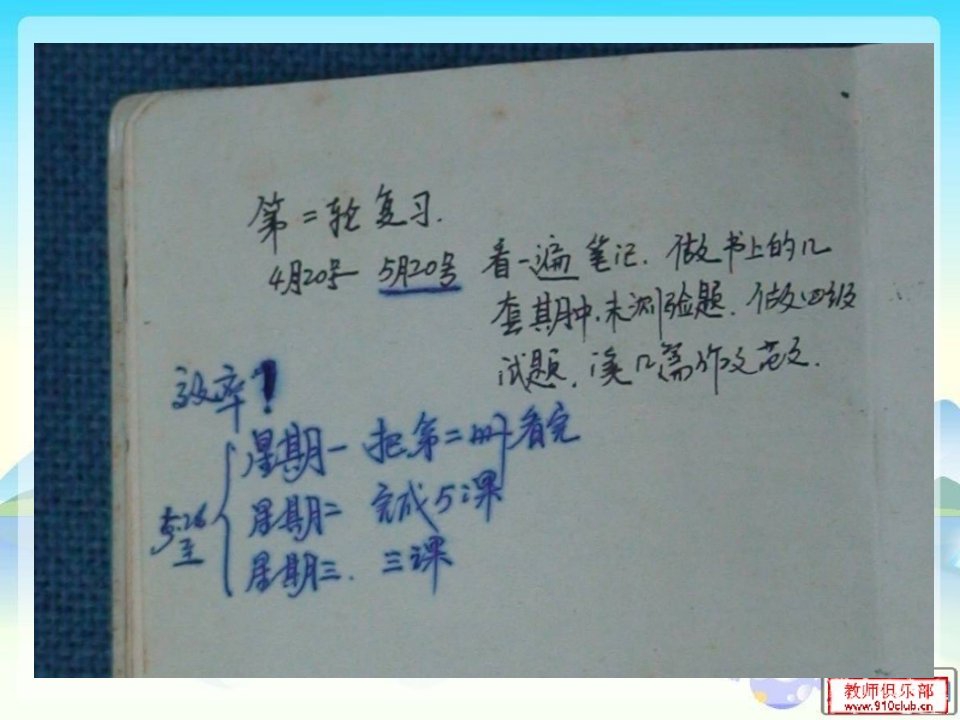 第二轮复习.
4月20号— 5月20号 看一遍笔记. 做书上的几
套期中.末测验题. 做四级
试题. 读几篇作文范文.
效率!
星期一 把第二册看完
5.26
至
星期二 完成5课
星期三. 三课
教师俱乐部
www.910club.cn